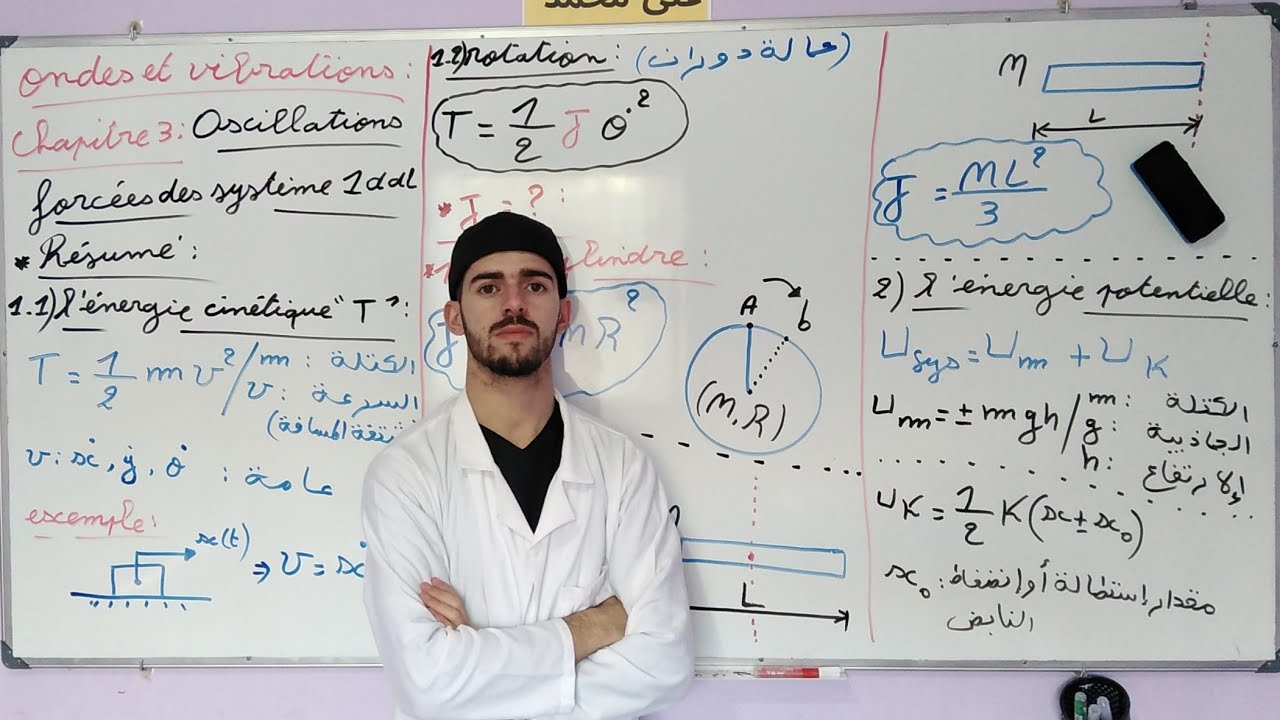 على محمد
ondes et vibrations:
Chapitre 3: Oscillations
forcées des système 1ddL
* Résumé:
1.1) l'énergie cinétique "T":
T = 1/2 m v² / m : الكتلة
v : السرعة
(مشتقة المسافة)
v: ẋ, ẏ, θ̇ : عامة
exemple:
x(t)
⇒ v = ẋ
1.2) rotation: (حالة دوران)
T = 1/2 J θ̇²
* J = ?:
ylindre:
J MR²
A
b
(M,R)
L
M
L
J = ML²/3
2) l'énergie potentielle:
Usys = Um + UK
Um = ± mgh / m : الكتلة
g : الجاذبية
h : الارتفاع
UK = 1/2 K(x ± x₀)
x₀ : مقدار إستطالة أو إنضغاط
النابض